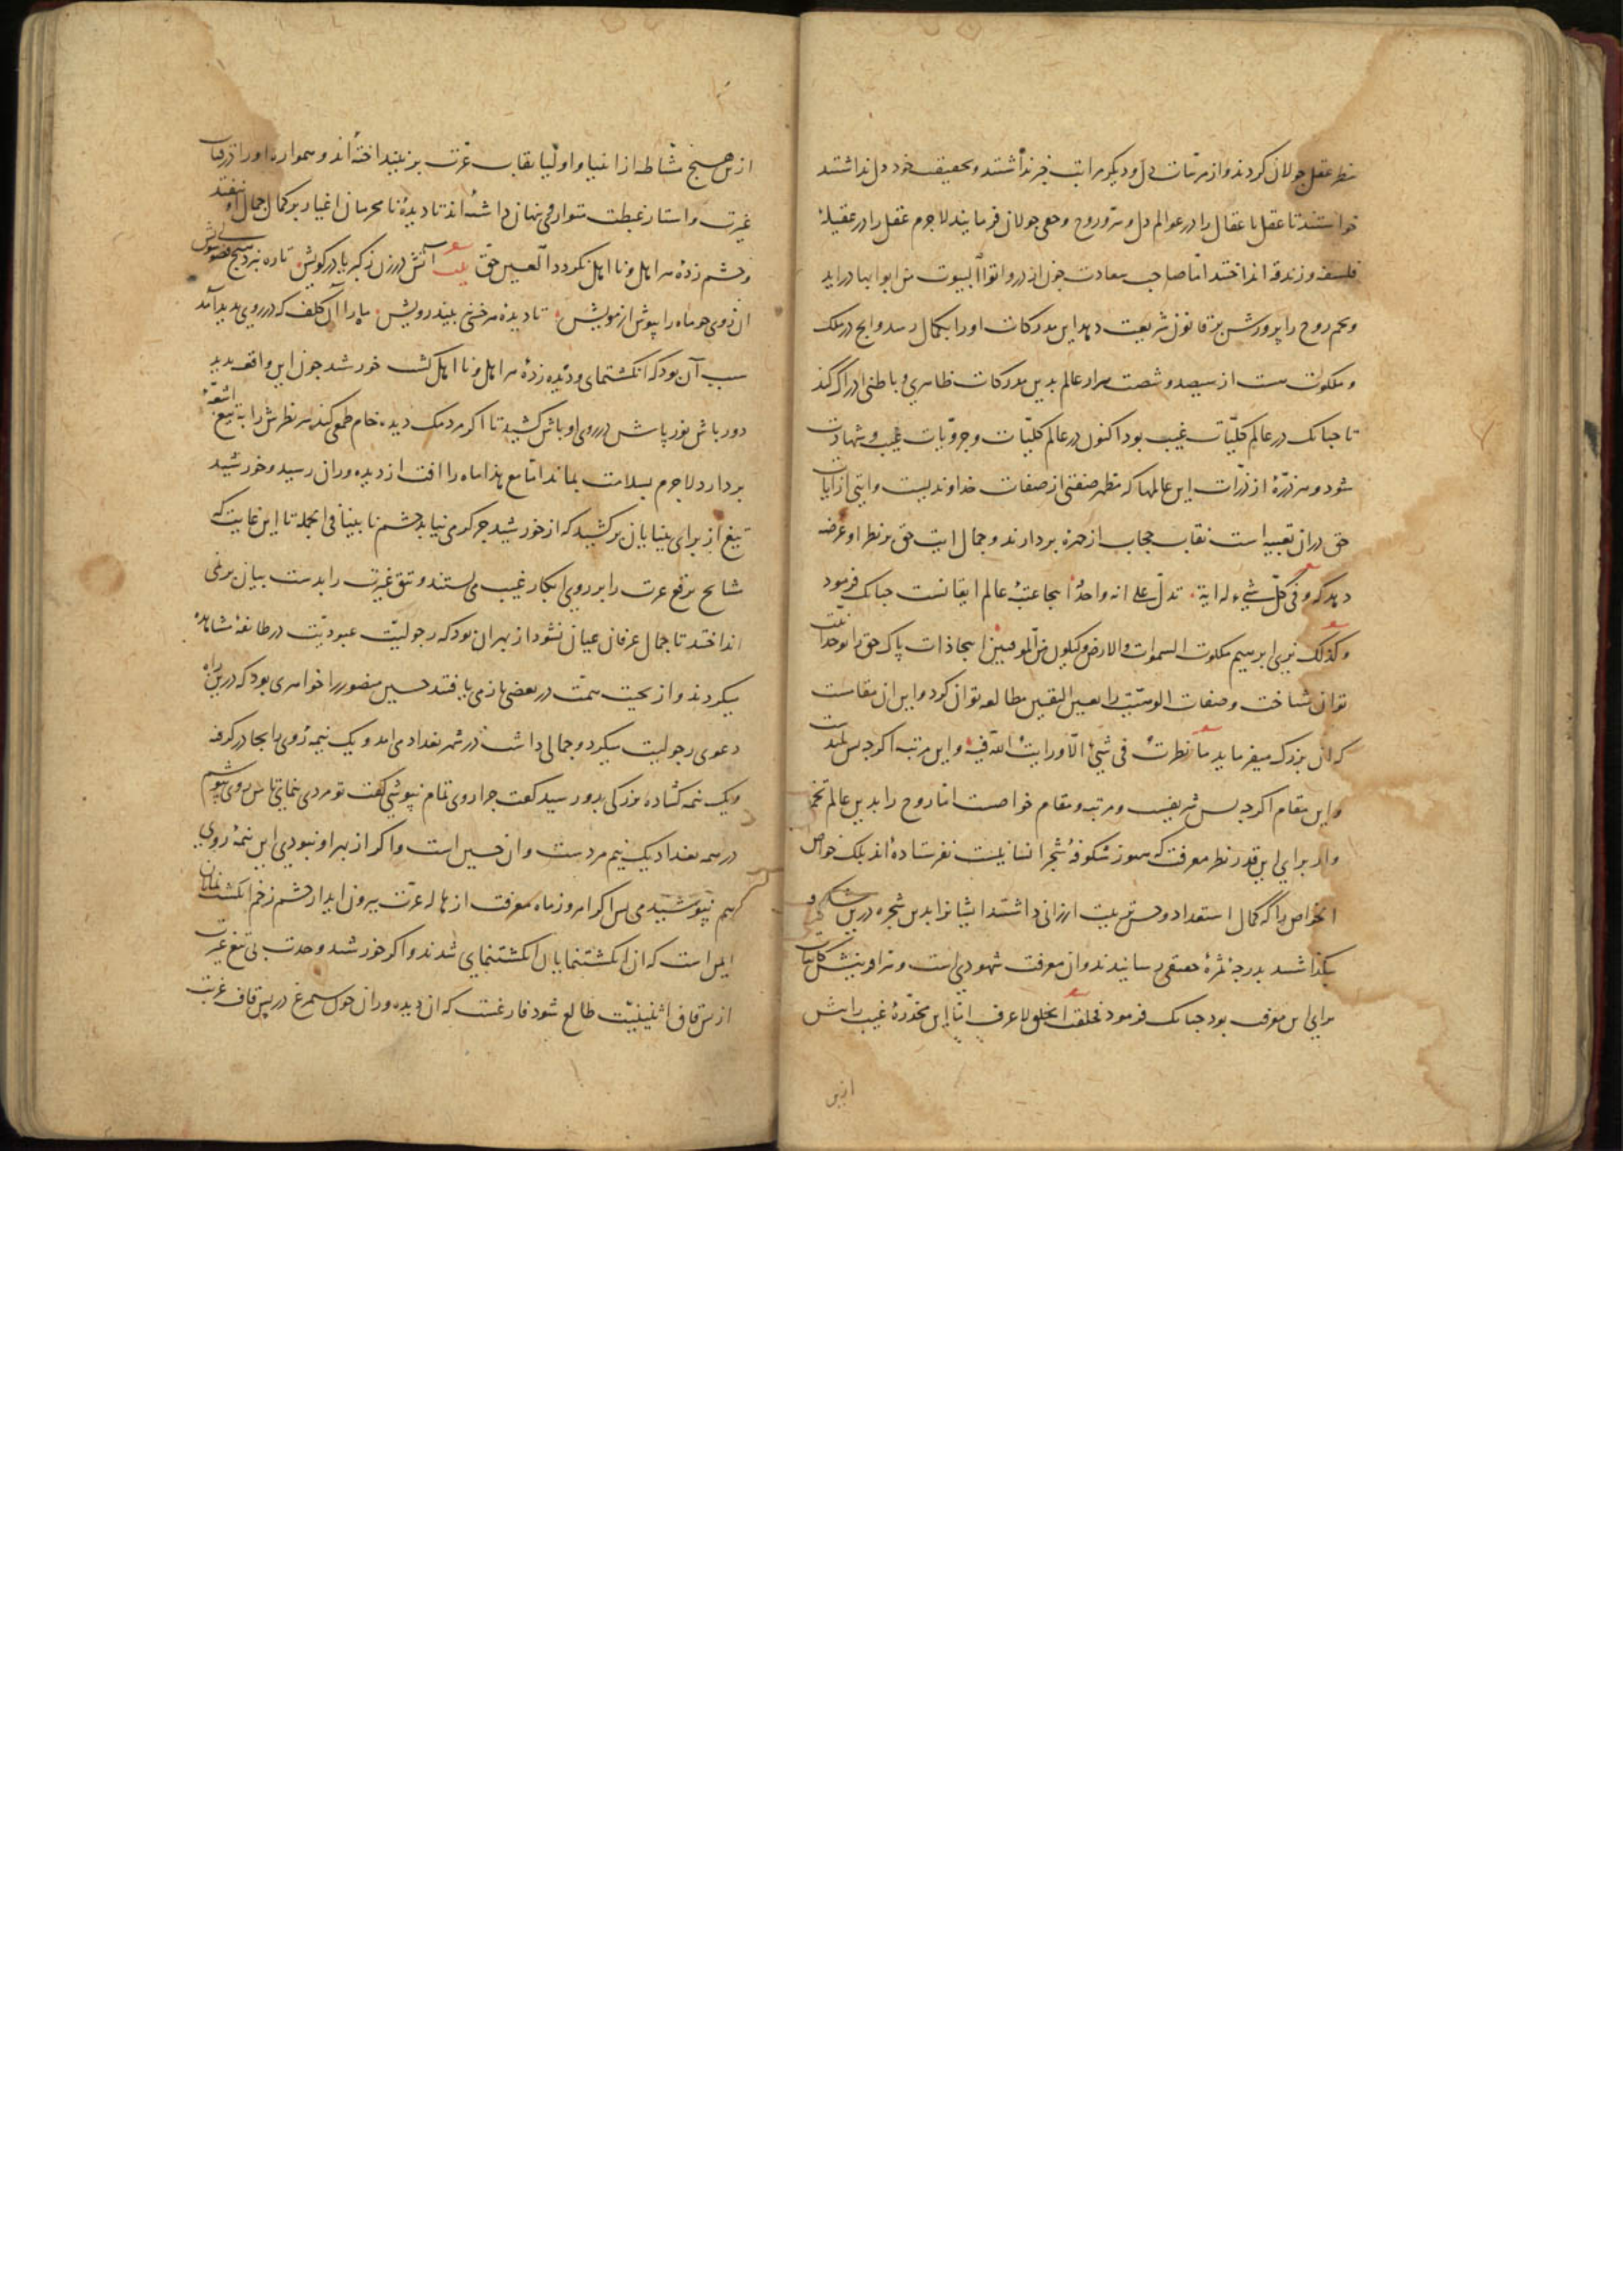 نظر عقل جولان کردند و از مرتبات دل و دیگر مراتب خبر نداشتند و بحقیقت خود دل نداشتند
خواستند تا عقل با عقال را در عوالم دل و سر و روح و خفی جولان فرمایند لاجرم عقل را در عقیلهٔ
فلسفه و زندقه انداختند اما صاحب سعادت چون از در واتوا البیوت من ابوابها دراید
و تخم روح را پرورش بر قانون شریعت دهد این مدرکات او را بکمال رسد و انچ در ملک
و ملکوت ست از سیصد و شصت هزار عالم بدین مدرکات ظاهری و باطنی ادراک کند
تا چنانک در عالم کلیّات غیب بود اکنون در عالم کلیّات و جزویّات غیب و شهادت
شود و هر ذرّهٔ از ذرّات این عالمها که مظهر صفتی از صفات خداوندیست و ایتی از ایات
حق در ان تعبیه است نقاب حجاب از چهره بردارند و جمال ایت حق بر نظر او عرضه
دهد که و فی کلّ شیء له ایة تدلّ علی انه واحدٌ اینجا عتبهٔ عالم ایقانست چنانک فرمود
و کذلک نری ابرهیم ملکوت السموات والارض ولیکون من الموقنین اینجا ذات پاک حق را بوحدانیّت
توان شناخت و صفات الوهیّت را بعین الیقین مطالعه توان کرد و این ان مقامست
که ان بزرک میفرماید ما نظرتُ فی شیءٍ الّا ورایتُ اللّه فیه و این مرتبه اکرچه بس بلندست
و این مقام اکرچه بس شریفست و مرتبه و مقام خواصست اما روح را بدین عالم تخم
وار برای این قدر نظر معرفت که هنوز شکوفهٔ شجرهٔ انسانیّت نفرستاده‌اند بلک خواص
الخواص را که کمال استعداد و حسن تربیت ارزانی داشتند ایشانرا بدین شجره درین
بگذاشتند بدرجهٔ ثمرهٔ حقیقی رسانیدند و ان معرفت شهودی است و سر افرینش کاینات
برای این معرفت بود چنانک فرمود فخلقت الخلق لاعرف امّا این مخدّرهٔ غیب را بیش
ازین
ازین هیچ مشّاطه از انبیا و اولیا نقاب عزّت بر نینداخته‌اند و همواره او را در قباب
غیرت و استار غبطت متواری و پنهان داشته‌اند تا دیدهٔ نامحرمان اغیار بر کمال جمال او نیفتد
و چشم زدهٔ هر اهل و نااهل نکردد العین حق بیت آتش درزن ز کبریا در کویش تا ره نبرد هیچ فضولی سویش
ان روی چو ماه را بپوش از مویش تا دیدهٔ هر خسی نبیند رویش ماه را آن کلف که در روی پدید آمد
سبب آن بود که انکشتنمای و دیده زدهٔ هر اهل و نااهل کشت خورشید چون این واقعه بدید
دورباش نورپاش در روی او باش کشید تا اکر مردمک دیده خام طمعی کند سر نظرش را به تیغ اشعّه
بردارد لاجرم بسلامت بماند امّا مع هذا ماه را افت از دیده وران رسید و خورشید
تیغ از برای بینایان برکشید که از خورشید جز کرمی نیابد چشم نابینا فی الجمله تا این غایت که
مشایخ برقع عزت را بر روی ابکار غیب می‌بستند و تتق غیرت را بدست بیان بر نمی
انداختند تا جمال عرفان عیان نشود از بهر ان بود که رجولیّت عبودیّت در طایفهٔ مشاهده
میکردند و از حیث همّت در بعضی باز می‌یافتند حسین منصور را خواهری بود که درین راه
دعوی رجولیت میکرد و جمالی داشت در شهر بغداد می‌امد و یک نیمهٔ روی را بچادر کرفته
و یک نیمه کشاده بزرکی بدو رسید کفت چرا روی تمام نپوشی کفت تو مردی بنمای تا من روی بپوشم
در همه بغداد یک نیم مردست و ان حسین است و اکر از بهر او نبودی این نیمهٔ روی
هم نپوشیدمی پس اکر امروز ماه معرفت از هالهٔ عزّت بیرون اید از چشم زخم انکشت نمایان
ایمن است که ان انکشتنمایان انکشتنمای شدند و اکر خورشید وحدت بی تیغ غیرت
از پس قاف اثنینیّت طالع شود فارغست که ان دیده وران چون سیمرغ در پس قاف عزت